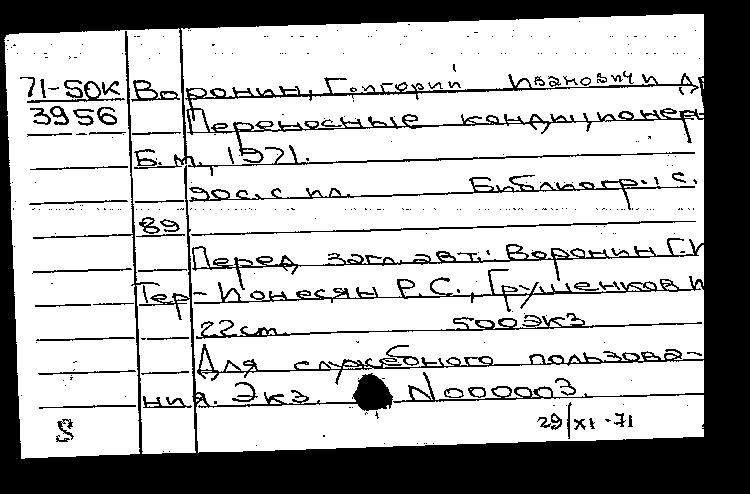 71-50К Воронин, Григорий Иванович и др
3956 Переносные кондиционеры
Б.м., 1971.
90с. с ил. Библиогр.: с.
89
Перед загл. авт.: Воронин Г.И
Тер-Ионесян Р.С., Грушенков И
22см. 500экз
Для служебного пользова-
ния. Экз. N000003.
S 29/XI-71